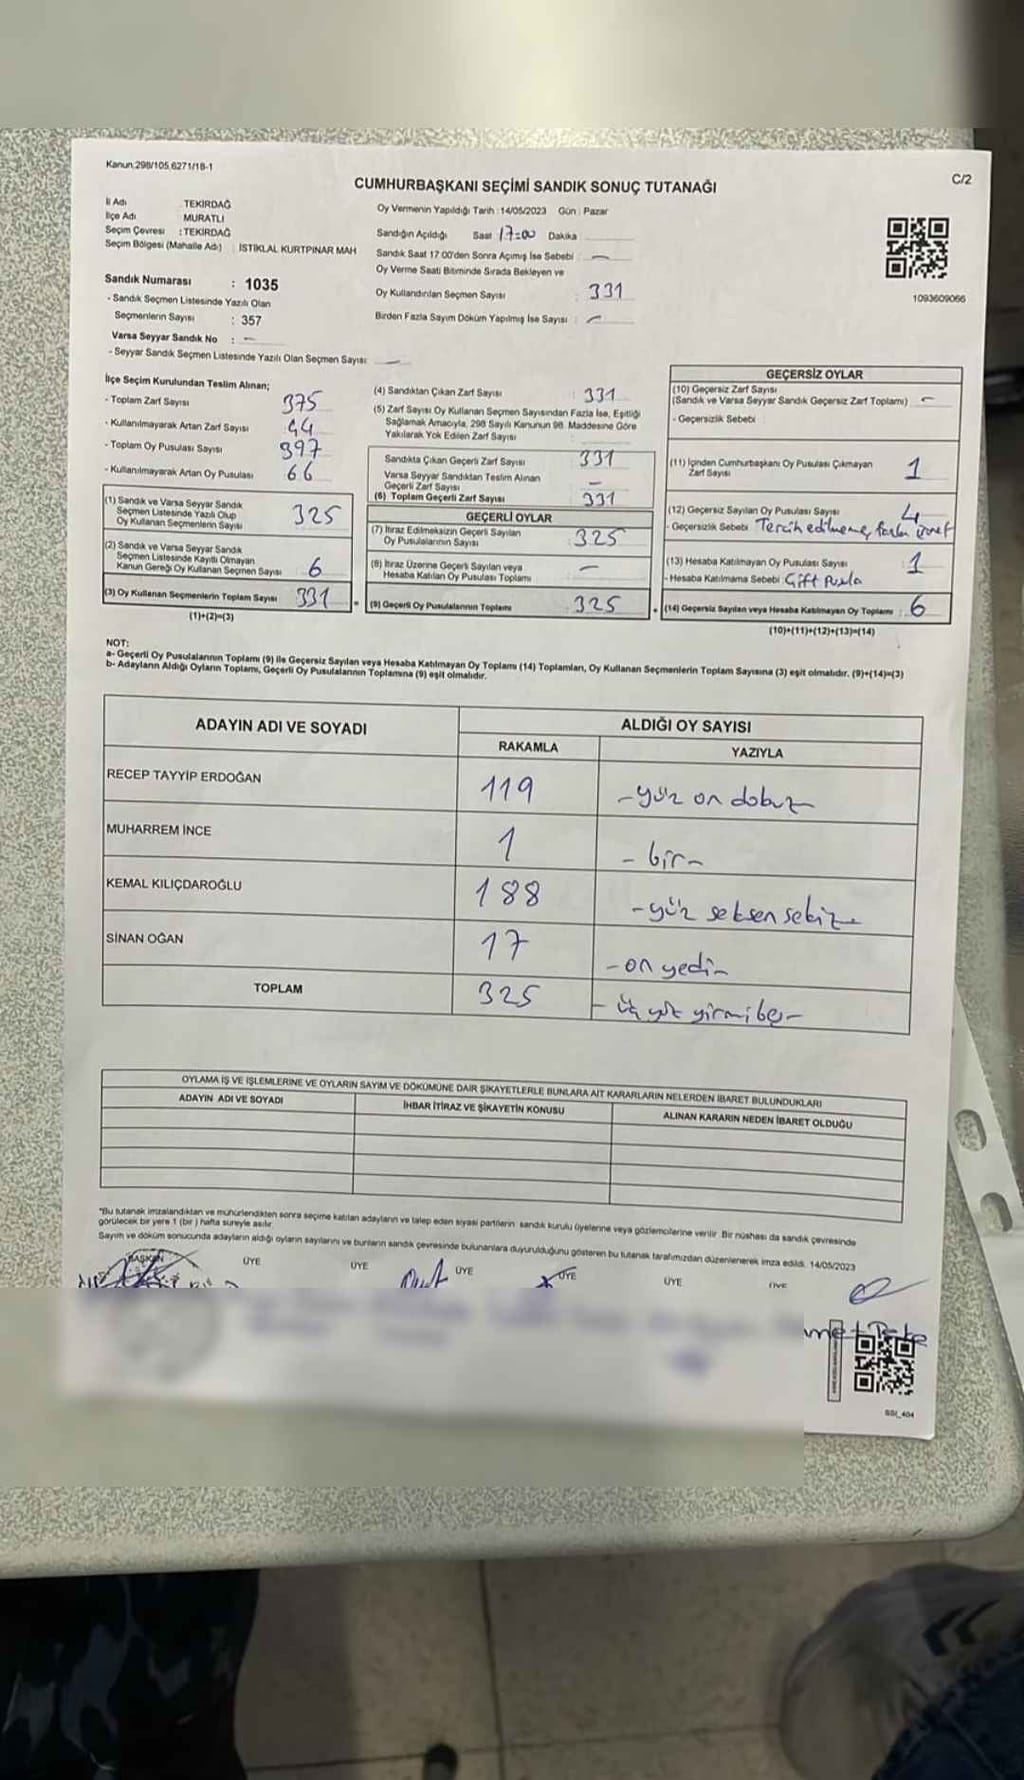 Kanun:298/105,6271/18-1
C/2
CUMHURBAŞKANI SEÇİMİ SANDIK SONUÇ TUTANAĞI
İl Adı TEKİRDAĞ
İlçe Adı MURATLI
Seçim Çevresi : TEKİRDAĞ
Seçim Bölgesi (Mahalle Adı) : İSTİKLAL KURTPINAR MAH
Sandık Numarası : 1035
- Sandık Seçmen Listesinde Yazılı Olan
Seçmenlerin Sayısı : 357
Varsa Seyyar Sandık No : -
- Seyyar Sandık Seçmen Listesinde Yazılı Olan Seçmen Sayısı: -
Oy Vermenin Yapıldığı Tarih :14/05/2023 Gün : Pazar
Sandığın Açıldığı Saat 17:00 Dakika
Sandık Saat 17:00'den Sonra Açımış İse Sebebi : -
Oy Verme Saati Bitiminde Sırada Bekleyen ve
Oy Kullandırılan Seçmen Sayısı : 331
Birden Fazla Sayım Döküm Yapılmış İse Sayısı : -
1093609066
İlçe Seçim Kurulundan Teslim Alınan;
- Toplam Zarf Sayısı 375
- Kullanılmayarak Artan Zarf Sayısı 44
- Toplam Oy Pusulası Sayısı 397
- Kullanılmayarak Artan Oy Pusulası 66
(1) Sandık ve Varsa Seyyar Sandık
Seçmen Listesinde Yazılı Olup
Oy Kullanan Seçmenlerin Sayısı 325
(2) Sandık ve Varsa Seyyar Sandık
Seçmen Listesinde Kayıtlı Olmayan
Kanun Gereği Oy Kullanan Seçmen Sayısı 6
(3) Oy Kullanan Seçmenlerin Toplam Sayısı 331
(1)+(2)=(3)
(4) Sandıktan Çıkan Zarf Sayısı : 331
(5) Zarf Sayısı Oy Kullanan Seçmen Sayısından Fazla İse, Eşitliği
Sağlamak Amacıyla, 298 Sayılı Kanunun 98. Maddesine Göre
Yakılarak Yok Edilen Zarf Sayısı
Sandıkta Çıkan Geçerli Zarf Sayısı 331
Varsa Seyyar Sandıktan Teslim Alınan
Geçerli Zarf Sayısı -
(6) Toplam Geçerli Zarf Sayısı 331
GEÇERLİ OYLAR
(7) İtiraz Edilmeksizin Geçerli Sayılan
Oy Pusulalarının Sayısı 325
(8) İtiraz Üzerine Geçerli Sayılan veya
Hesaba Katılan Oy Pusulası Toplamı -
= (9) Geçerli Oy Pusulalarının Toplamı 325
GEÇERSİZ OYLAR
(10) Geçersiz Zarf Sayısı
(Sandık ve Varsa Seyyar Sandık Geçersiz Zarf Toplamı) -
- Geçersizlik Sebebi :
(11) İçinden Cumhurbaşkanı Oy Pusulası Çıkmayan
Zarf Sayısı 1
(12) Geçersiz Sayılan Oy Pusulası Sayısı 4
- Geçersizlik Sebebi Tercih edilmeme,
(13) Hesaba Katılmayan Oy Pusulası Sayısı 1
- Hesaba Katılmama Sebebi : Çift Pusula
+ (14) Geçersiz Sayılan veya Hesaba Katılmayan Oy Toplamı : 6
(10)+(11)+(12)+(13)=(14)
NOT:
a- Geçerli Oy Pusulalarının Toplamı (9) ile Geçersiz Sayılan veya Hesaba Katılmayan Oy Toplamı (14) Toplamları, Oy Kullanan Seçmenlerin Toplam Sayısına (3) eşit olmalıdır. (9)+(14)=(3)
b- Adayların Aldığı Oyların Toplamı, Geçerli Oy Pusulalarının Toplamına (9) eşit olmalıdır.
ADAYIN ADI VE SOYADI ALDIĞI OY SAYISI
RAKAMLA YAZIYLA
RECEP TAYYİP ERDOĞAN 119 -yüz on dokuz-
MUHARREM İNCE 1 - bir -
KEMAL KILIÇDAROĞLU 188 -yüz seksen sekiz-
SİNAN OĞAN 17 -on yedi-
TOPLAM 325 - üç yüz yirmi beş -
OYLAMA İŞ VE İŞLEMLERİNE VE OYLARIN SAYIM VE DÖKÜMÜNE DAİR ŞİKAYETLERLE BUNLARA AİT KARARLARIN NELERDEN İBARET BULUNDUKLARI
ADAYIN ADI VE SOYADI İHBAR İTİRAZ VE ŞİKAYETİN KONUSU ALINAN KARARIN NEDEN İBARET OLDUĞU
*Bu tutanak imzalandıktan ve mühürlendikten sonra seçime katılan adayların ve talep eden siyasi partilerin sandık kurulu üyelerine veya gözlemcilerine verilir. Bir nüshası da sandık çevresinde
görülecek bir yere 1 (bir) hafta süreyle asılır.
Sayım ve döküm sonucunda adayların aldığı oyların sayılarını ve bunların sandık çevresinde bulunanlara duyurulduğunu gösteren bu tutanak tarafımızdan düzenlenerek imza edildi. 14/05/2023
BAŞKAN ÜYE ÜYE ÜYE ÜYE ÜYE ÜYE
SSI_404